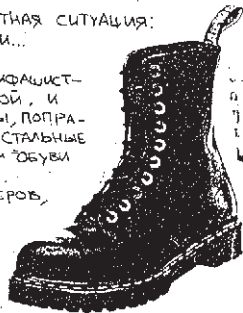 ТНАЯ СИТУАЦИЯ:
И...
ИФАШИСТ-
ОЙ, И
Ы, ПОПРА-
СТАЛЬНЫЕ
ОБУВИ
ЕРОВ,